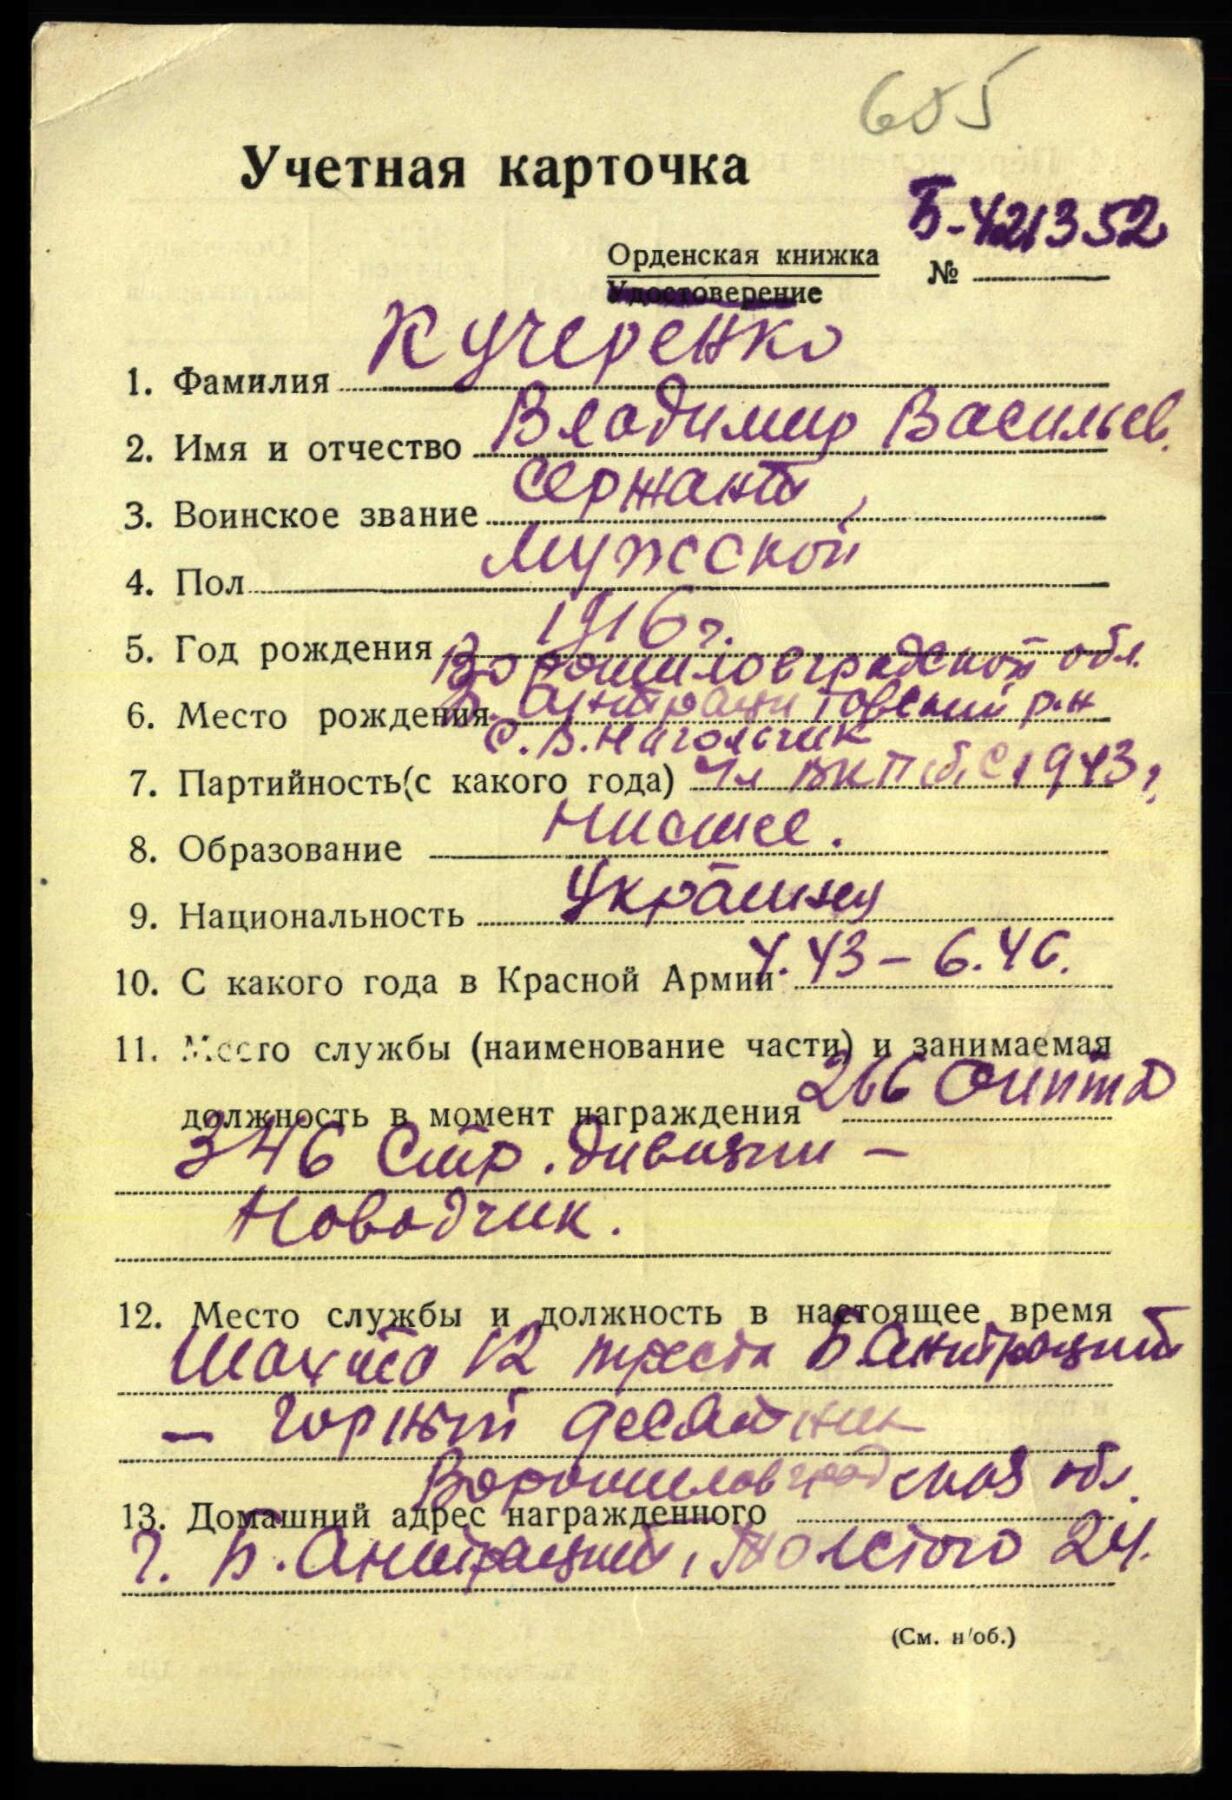 605
Учетная карточка
Б-421352
Орденская книжка
Удостоверение №
Кучеренко
1. Фамилия
Владимир Васильев.
2. Имя и отчество
сержант
3. Воинское звание
мужской
4. Пол
1916 г.
5. Год рождения
Ворошиловградской обл.
6. Место рождения Б. Антрацитовский р-н
с. В. Нагольчик
7. Партийность (с какого года) Чл ВКП(б) с 1943 г.
Низшее.
8. Образование
9. Национальность Украинец
10. С какого года в Красной Армии 4.43 – 6.46.
11. Место службы (наименование части) и занимаемая
должность в момент награждения 266
346 Стр. дивизии –
Наводчик.
12. Место службы и должность в настоящее время
Шахта 12 треста Б. Антрацит
– горный десятник
Ворошиловградская обл.
13. Домашний адрес награжденного
г. Б. Антрацит, Толстого 24.
(См. н/об.)